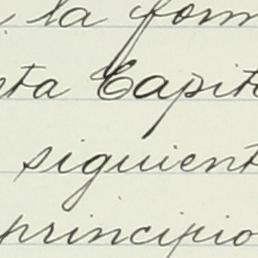 la form
ta Capit
siguient
principio